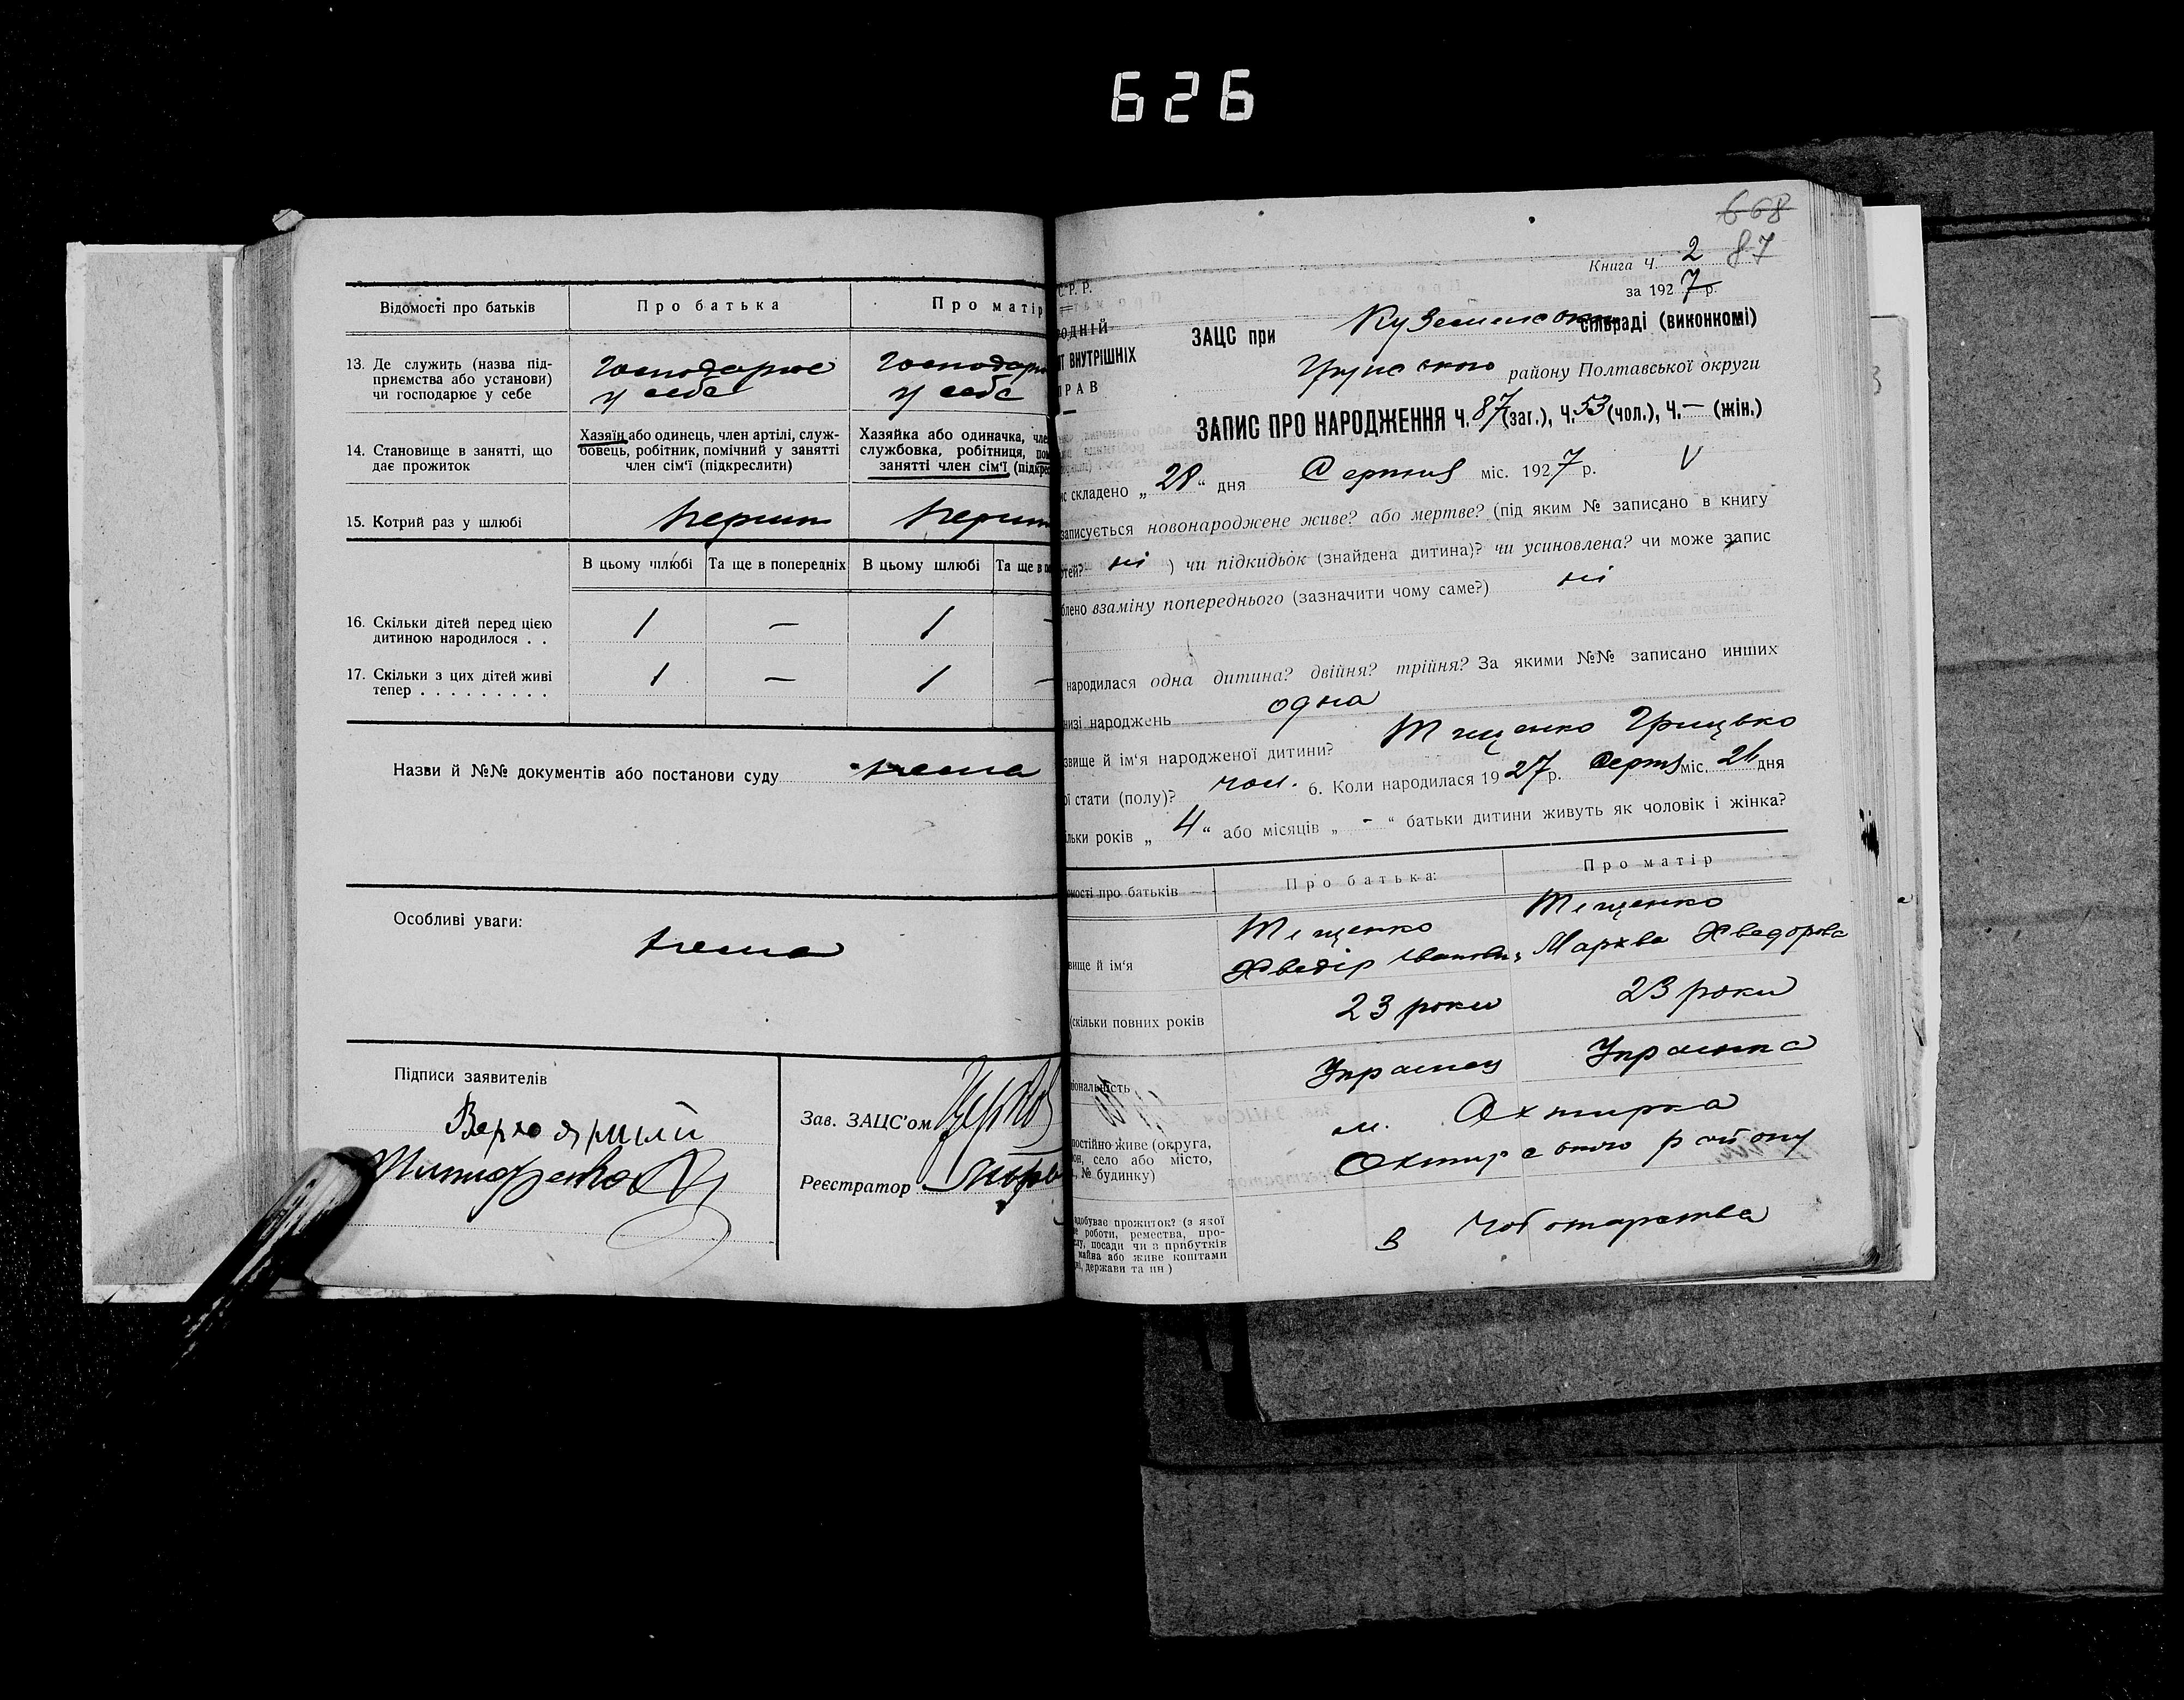 626
Відомості про батьків
Про батька
Про матір
13. Де служить (назва під-
приємства або установи)
чи господарює у себе
господарює
у себе
господарю
у себе
14. Становище в занятті, що
дає прожиток
Хазяїн або одинець, член артілі, служ-
бовець, робітник, помічний у занятті
член сім'ї (підкреслити)
Хазяйка або одиначка, чле
службовка, робітниця, пом
занятті член сім'ї (підкрес
15. Котрий раз у шлюбі
перший
перший
В цьому шлюбі
Та ще в попередніх
В цьому шлюбі
Та ще в по
16. Скільки дітей перед цією
дитиною народилося . .
1
—
1
17. Скільки з цих дітей живі
тепер . . . . . . . . .
1
—
1
Назви й №№ документів або постанови суду нема
Особливі уваги:
нема
Підписи заявителів
Зав. ЗАЦС'ом
Реєстратор
668
87
Книга Ч. 2
за 1927 р.
С.Р.Р.
ОДНІЙ
Т ВНУТРІШНІХ
РАВ
ЗАЦС при
сільраді (виконкомі)
Грунського району Полтавської округи
ЗАПИС ПРО НАРОДЖЕННЯ Ч. 87 (заг.), Ч. 53 (чол.), Ч. — (жін.)
с складено „28“ дня Серпня міс. 1927 р. V
записується новонароджене живе? або мертве? (під яким № записано в книгу
ртей? ні ) чи підкидьок (знайдена дитина)? чи усиновлена? чи може запис
блено взаміну попереднього (зазначити чому саме?) ні
народилася одна дитина? двійня? трійня? За якими №№ записано инших
низі народжень одна
звище й ім'я народженої дитини? Тищенко Грицько
ої стати (полу)? чол. 6. Коли народилася 1927 р. Серпня міс. 21 дня
ільки років „4“ або місяців „-“ батьки дитини живуть як чоловік і жінка?
омості про батьків
Про батька:
Про матір
вище й ім'я
Тищенко
Хведір Іванович
Тищенко
Мархва Хведорова
(скільки повних років
23 роки
23 роки
іональність
Українец
Українка
постійно живе (округа,
он, село або місто,
, № будинку)
м. Охтирка
Охтирського району
здобуває прожиток? (з якої
е роботи, ремества, про-
слу, посади чи з прибутків
майва або живе коштами
ні, держави та ин )
в Чоботарства